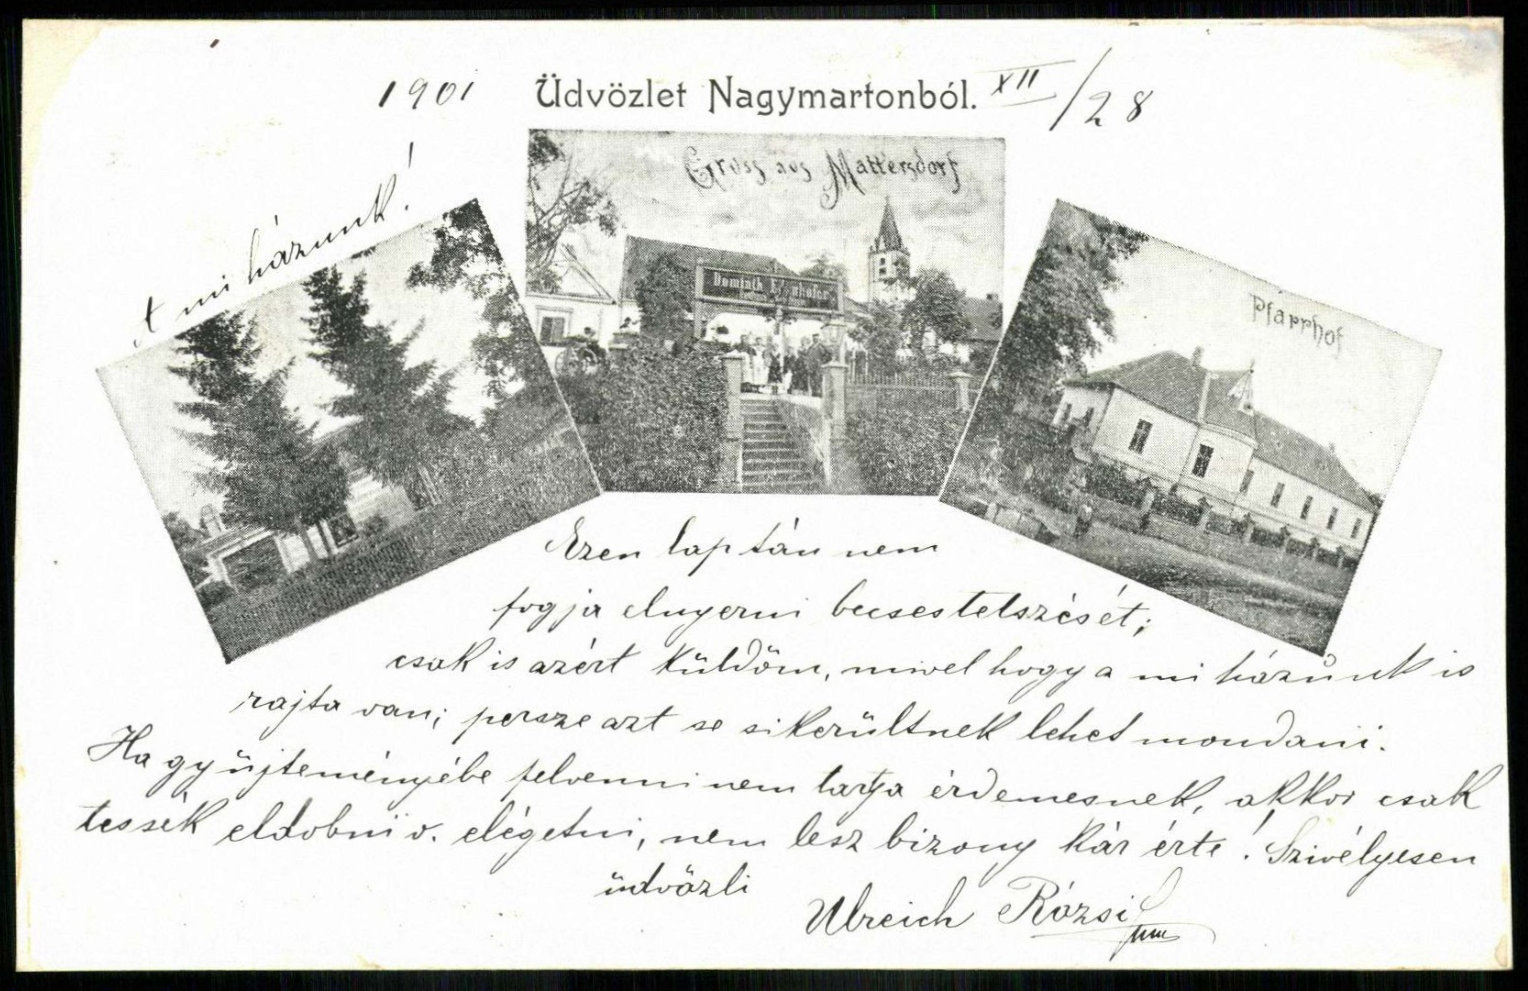 1901 Üdvözlet Nagymartonból. XII/28
Gruss aus Mattersdorf
A mi házunk!
Dominik
Pfarrhof
Ezen lap tán nem
fogja elnyerni becses tetszését;
csak is azért küldöm, mivel hogy a mi házunk is
rajta van; persze azt se sikerültnek lehet mondani.
Ha gyüjteményébe felvenni nem tartja érdemesnek, akkor csak
tessék eldobni v. elégetni, nem lesz bizony kár érte! Szivélyesen
üdvözli
Ulreich Rózsi